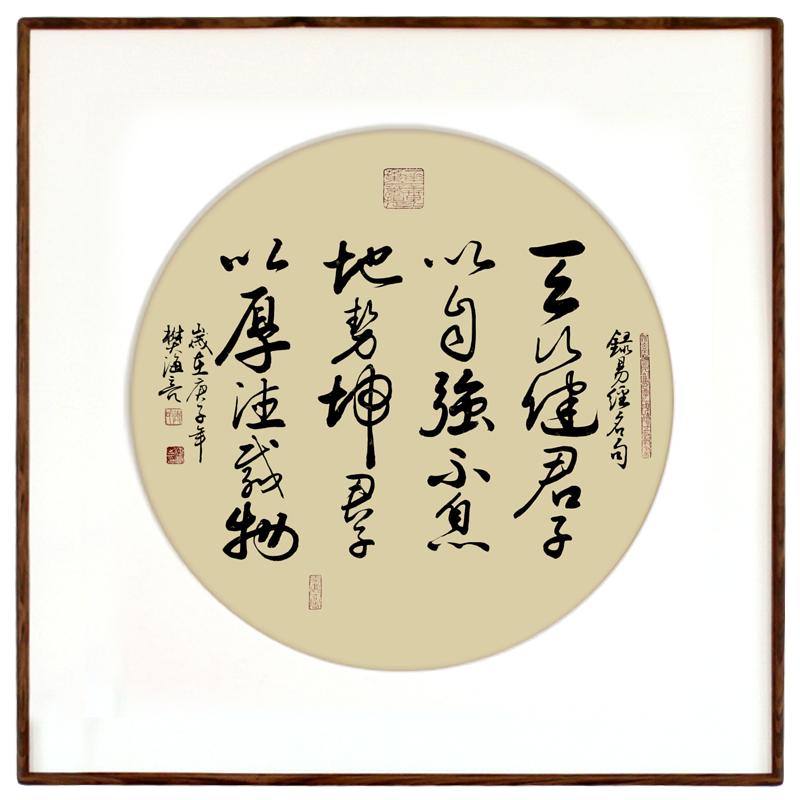 錄易經名句
天行健君子
以自強不息
地勢坤君子
以厚德載物
歲在庚子年
樊海亮